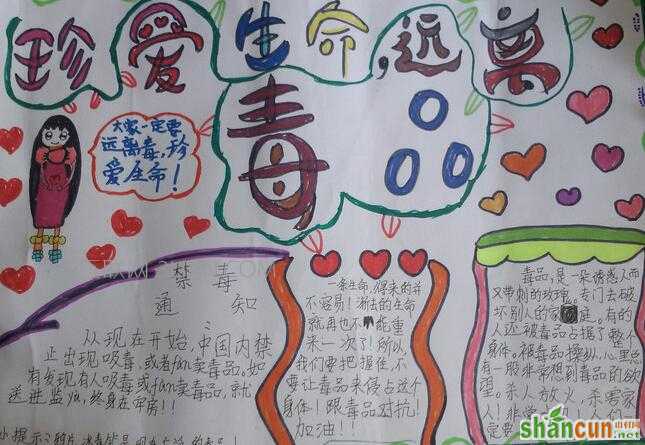 珍爱生命,远离
毒品
大家一定要
远离毒,珍
爱生命!
禁毒
通知
从现在开始,中国内禁
止出现吸毒,或者贩卖毒品,如
有发现有人吸毒或贩卖毒品,就
送进监狱,终身在牢房!!
一条生命,得来的并
不容易!消去的生命
就再也不能重
来一次了!所以,
我们要把握住,不
要让毒品来侵占这个
身体!跟毒品对抗!
加油!!
毒品,是一朵诱惑人而
又带刺的玫瑰,专门去破
坏别人的家庭。有的
人还被毒品占据了整个
身体。被毒品操纵,心里也
有一股非常想到毒品的欲
望。杀人放火,杀害家
人!非常
定要
小提示:
shancun.net
山村网